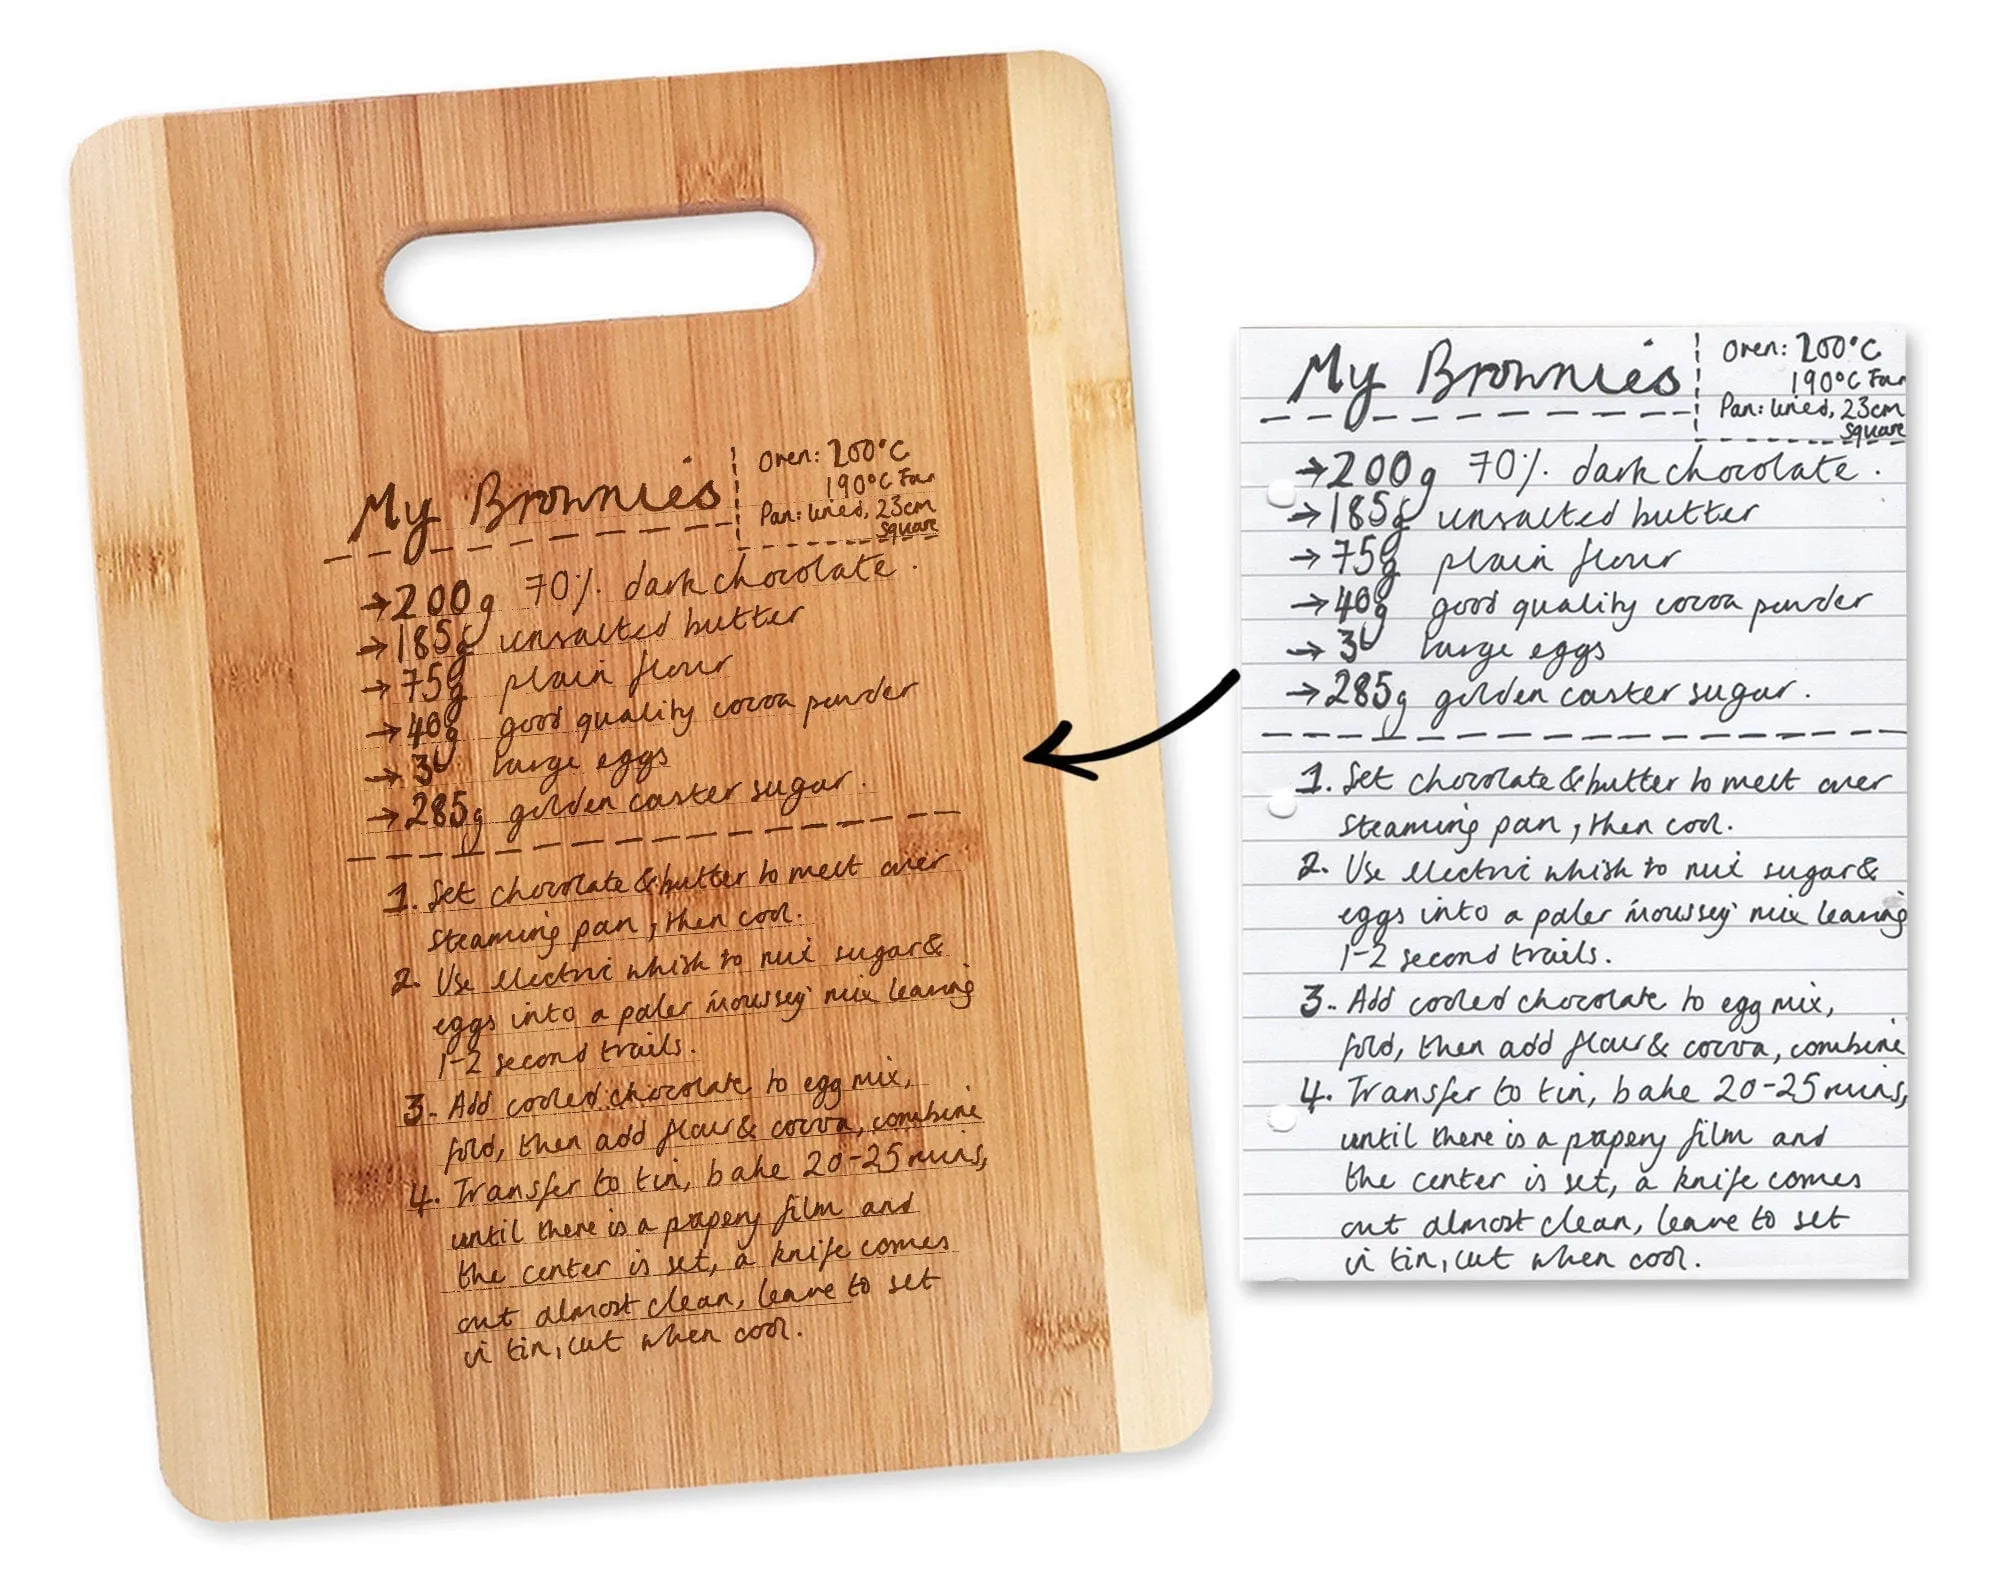 My Brownies
Oven: 200°C
190°C Fan
Pan: lined, 23cm
square
→200g 70%. dark chocolate.
→185g unsalted butter
→75g plain flour
→40g good quality cocoa powder
→3 large eggs
→285g golden caster sugar.
1. Set chocolate & butter to melt over
steaming pan, then cool.
2. Use electric whisk to mix sugar &
eggs into a paler 'moussey' mix leaving
1-2 second trails.
3. Add cooled chocolate to egg mix,
fold, then add flour & cocoa, combine
4. Transfer to tin, bake 20-25 mins,
until there is a papery film and
the center is set, a knife comes
out almost clean, leave to set
in tin, cut when cool.
My Brownies
Oven: 200°C
190°C Fan
Pan: lined, 23cm
square
→200g 70%. dark chocolate.
→185g unsalted butter
→75g plain flour
→40g good quality cocoa powder
→3 large eggs
→285g golden caster sugar.
1. Set chocolate & butter to melt over
steaming pan, then cool.
2. Use electric whisk to mix sugar &
eggs into a paler 'moussey' mix leaving
1-2 second trails.
3. Add cooled chocolate to egg mix,
fold, then add flour & cocoa, combine
4. Transfer to tin, bake 20-25 mins,
until there is a papery film and
the center is set, a knife comes
out almost clean, leave to set
in tin, cut when cool.